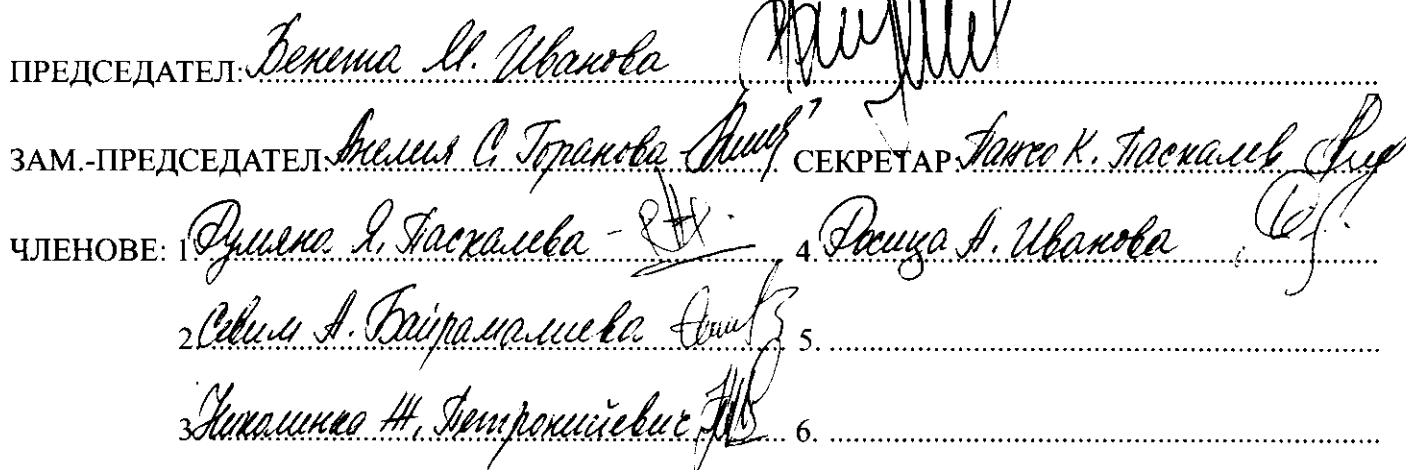 ПРЕДСЕДАТЕЛ: Венета М. Иванова
ЗАМ.-ПРЕДСЕДАТЕЛ: Анелия С. Горанова СЕКРЕТАР: Панчо К. Паскалев
ЧЛЕНОВЕ: 1 Румяна Я. Паскалева - 4. Росица А. Иванова
2. Севим А. Байрамалиева 5.
3. Николинка Ж. Петронийевич 6.